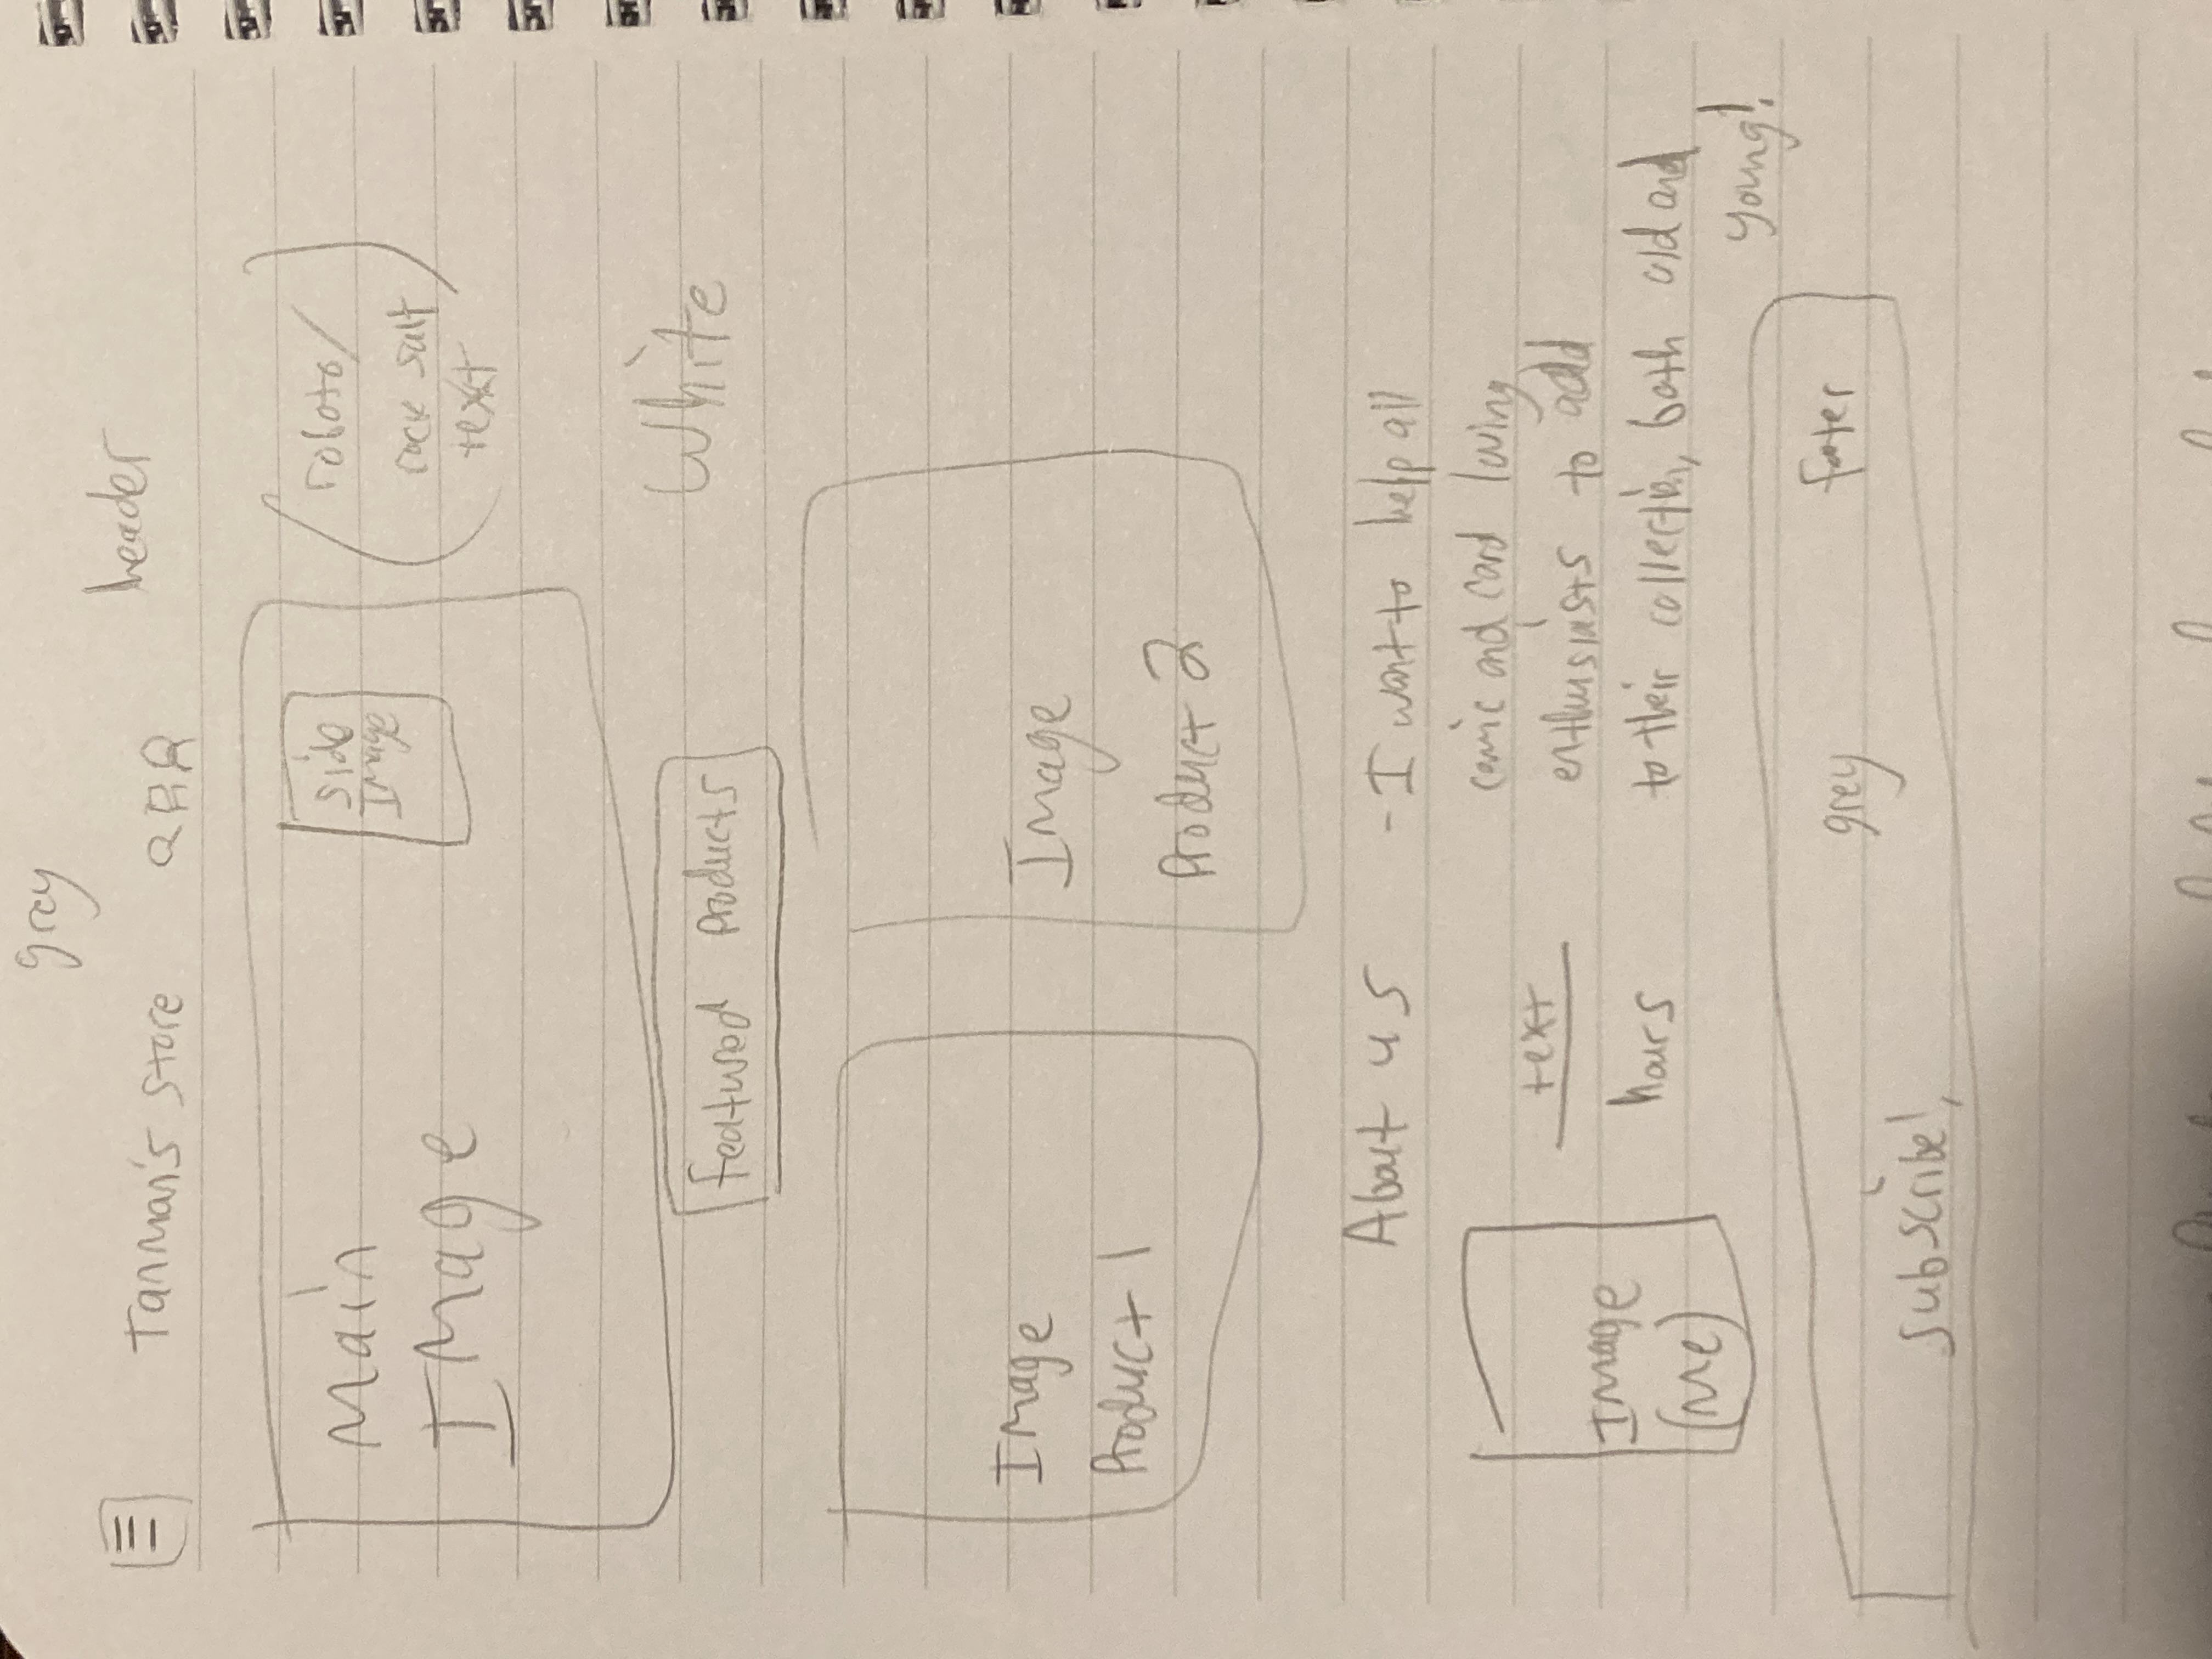 grey
header
Tanman's store
Main
Image
side
Image
roboto/
rock salt
text
White
featured products
Image
Product 1
Image
Product 2
About us
- I want to help all
comic and card loving
enthusiasts to add
to their collection, both old and
young!
Image
(me)
text
hours
grey
footer
subscribe!